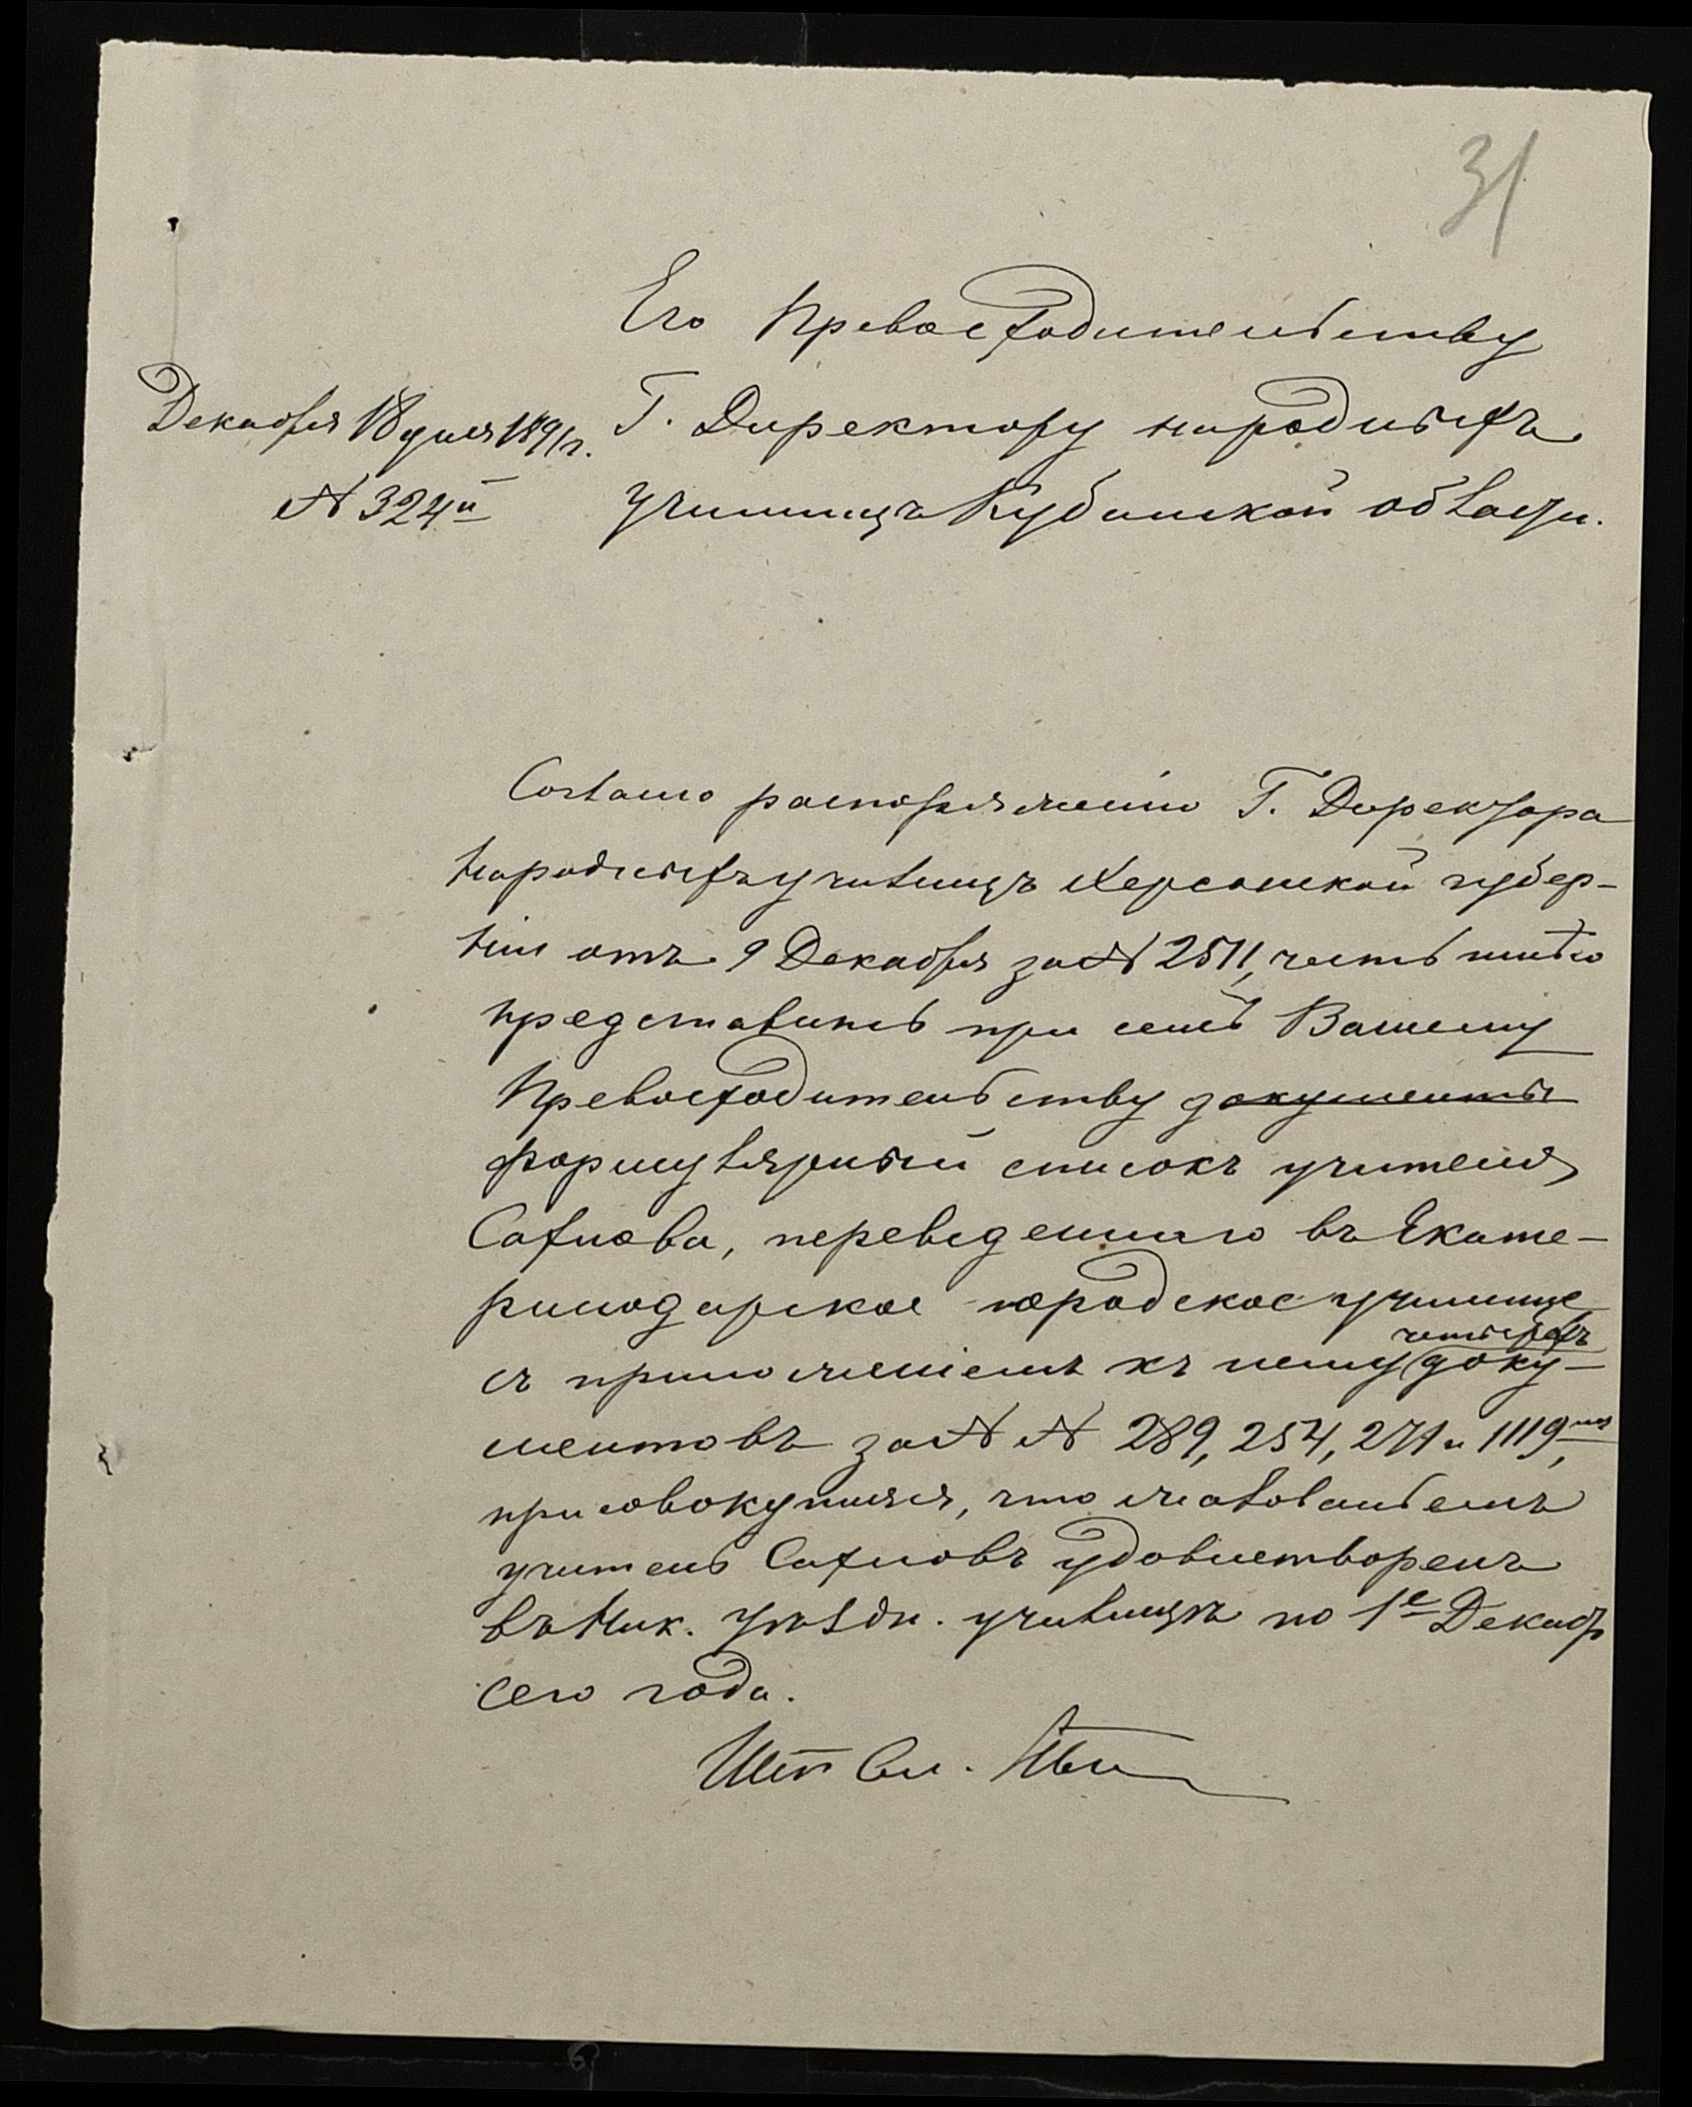 31
Его Превосходительству
Декабря 18 дня 1891 г.
№ 324й
Г. Директору народныхъ
училищъ Кубанской области.
Согласно распоряженію Г. Директора
Народныхъ училищъ Херсонской губер-
ніи отъ 9 Декабря за № 2511, честь имѣю
представить при семъ Вашему
Превосходительству документы
формулярный списокъ учителя
Сахнова, переведеннаго въ Екате-
ринодарское городское училище
четырехъ
съ приложеніемъ къ нему доку-
ментовъ за № № 289, 254, 271 и 1119,
присовокупляя, что жалованьемъ
учитель Сахновъ удовлетворенъ
въ Ник. уѣздн. училищѣ по 1е Декабр
сего года.
Шт. См.